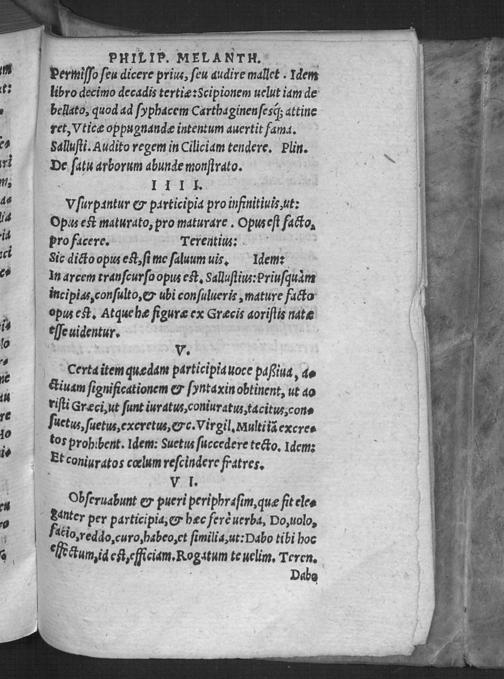 PHILIP. MELANTH.
Permisso seu dicere prius, seu audire mallet. Idem
libro decimo decadis tertiæ: Scipionem uelut iam de
bellato, quod ad syphacem Carthaginensesq; attine
ret, Vticæ oppugnandæ intentum auertit fama.
Sallusti. Audito regem in Ciliciam tendere. Plin.
De satu arborum abunde monstrato.
IIII.
Vsurpantur & participia pro infinitiuis, ut:
Opus est maturato, pro maturare. Opus est facto,
pro facere. Terentius:
Sic dicto opus est, si me saluum uis. Idem:
In arcem transcurso opus est. Sallustius: Priusquàm
incipias, consulto, & ubi consulueris, mature facto
opus est. Atque hæ figuræ ex Græcis aoristis natæ
esse uidentur.
V.
Certa item quædam participia uoce paßiua, a-
ctiuam significationem & syntaxin obtinent, ut ao
risti Græci, ut sunt iuratus, coniuratus, tacitus, con-
suetus, suetus, excretus, &c. Virgil. Multi iã excre-
tos prohibent. Idem: Suetus succedere tecto. Idem:
Et coniuratos cœlum rescindere fratres.
VI.
Obseruabunt & pueri periphrasim, quæ fit ele-
ganter per participia, & hæc ferè uerba, Do, uolo,
facio, reddo, curo, habeo, et similia, ut: Dabo tibi hoc
effectum, id est, efficiam. Rogatum te uelim. Teren.
Dabo